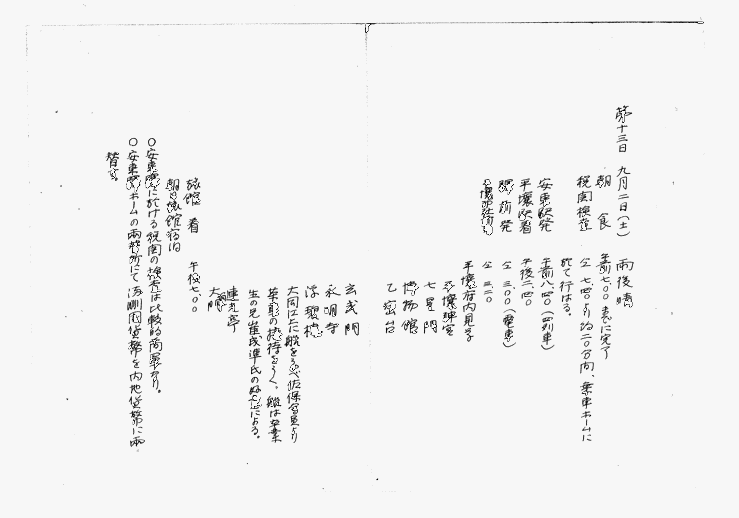 第十三日 九月二日(土) 雨後晴
朝食 午前七.〇〇までに完了
税関検査 仝 七.四〇より約二〇分間、乗車ホームに
於て行はる。
安東駅発 午前八.四〇(四列車)
平壌駅着 午後二.四〇
駅前発 仝 三.〇〇(電車)
仝 三.二〇
平壌府内見学
七星門
博物館
乙密台
玄武門
永明寺
浮碧楼
大同江上に船をうかべ
の接待をうく、船は卒業
生の兄崔成準氏の好意による。
大
旅館着 午後七.〇〇
朝日旅館宿泊
○安東駅に於ける税関の検査は比較的簡単なり。
○安東駅ホームの両替所にて満洲国貨幣を内地貨幣に両
替す。